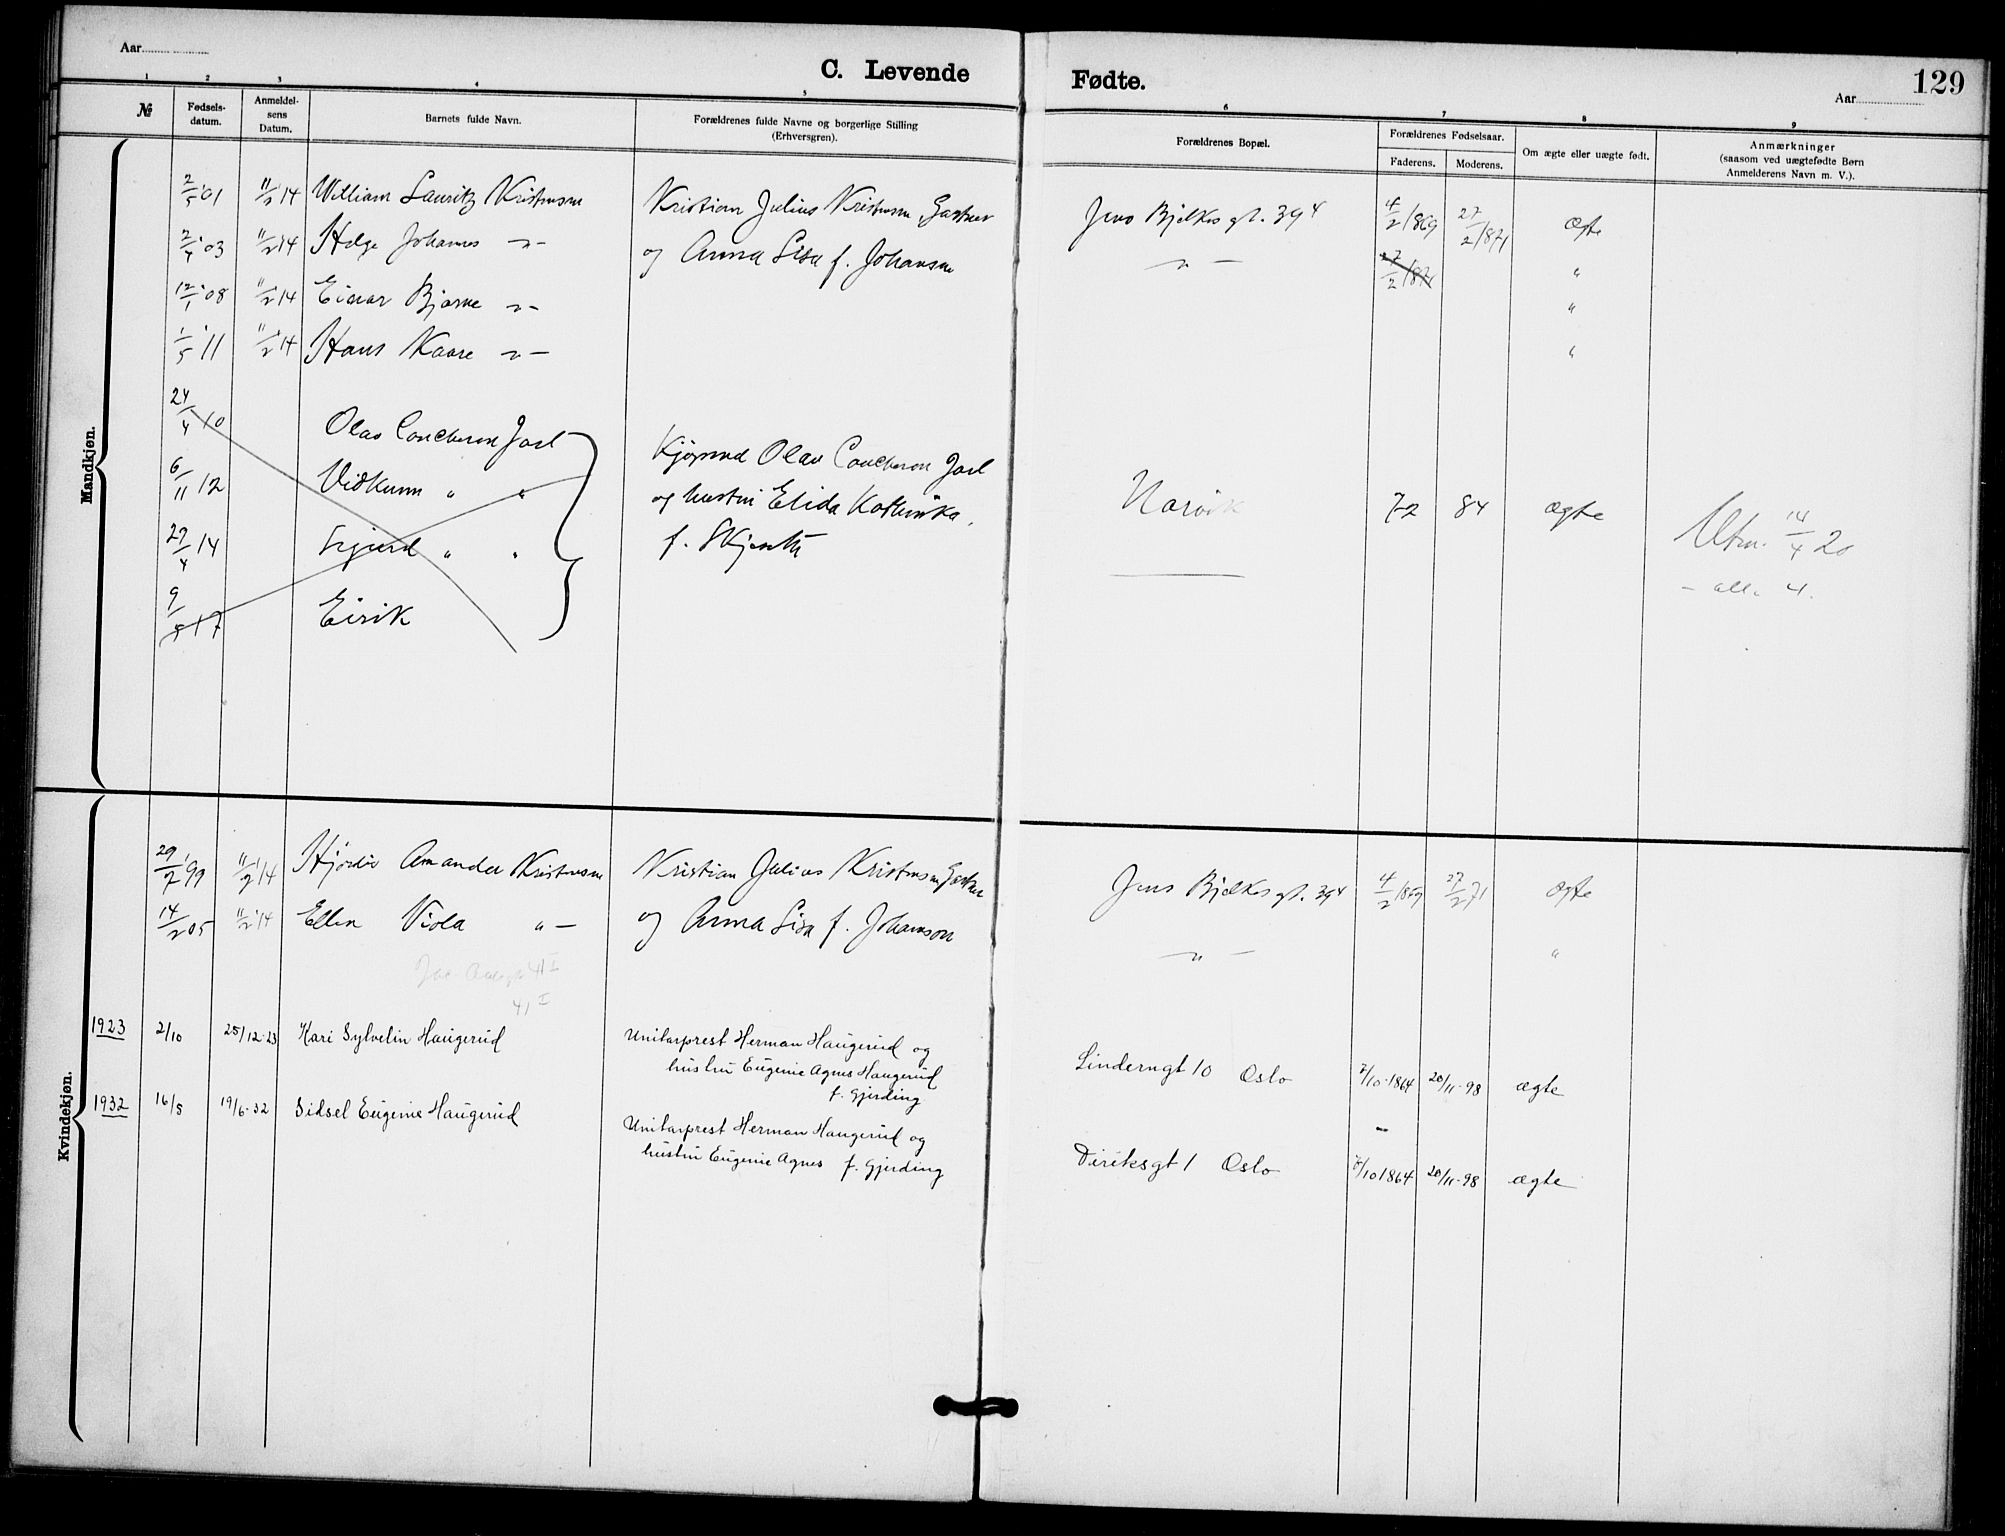 Aar
C. Levende Fødte.
129
Aar
1 2 3 4 5 6 7 8 9
№
Fødsels-
datum.
Anmeldel-
sens
Datum.
Barnets fulde Navn.
Forældrenes fulde Navne og borgerlige Stilling
(Erhversgren).
Forældrenes Bopæl.
Forældrenes Fødselsaar.
Faderens.
Moderens.
Om ægte eller uægte født.
Anmærkninger
(saasom ved uægtefødte Børn
Anmelderens Navn m. V.).
Mandkjøn.
2/5 '01 11/2 '14 William Lauritz Kristensen Kristian Julius Kristensen, Gartner Jens Bjelkes gt. 39 4 4/2 1869 27/2 1871 Ægte
2/4 '03 11/2 '14 Helge Johannes -"- og Anna Lisa f. Johansen -"- 27/2 187 "
12/1 '08 11/2 '14 Einar Bjarne -"- "
1/5 '11 11/2 '14 Hans Kaare -"- "
24/4 10 Olav Coucheron Jarl Kjøpmd Olav Coucheron Jarl
6/11 12 Vidkunn " " og hustru Elida Kathinka Narvik 72 84 ægte Utm. 14/4 20
27/4 14 Sigurd " " f.
- alle 4.
9/ 17 Eirik
Kvindekjøn.
29/7 '99 11/2 '14 Hjørdis Amanda Kristensen Kristian Julius Kristensen, Gartner Jens Bjelkes gt. 39 4 4/2 1869 27/2 71 Ægte
14/2 05 11/2 '14 Ellen Viola "- og Anna Lisa f. Johanson -"- "
41 I
41 I
1923 2/10 25/12-23 Kari Sylvelin Haugerud Unitarprest Herman Haugerud og
hustru Eugenie Agnes Haugerud
f. Gjerding
Linderngt 10 Oslo 7/10-1864 20/11-98 ægte
1932 16/5 19/6-32 Sidsel Eugenie Haugerud Unitarprest Herman Haugerud og
hustru Eugenie Agnes f. Gjerding
Diriksgt 1 Oslo 7/10 1864 20/11-98 ægte